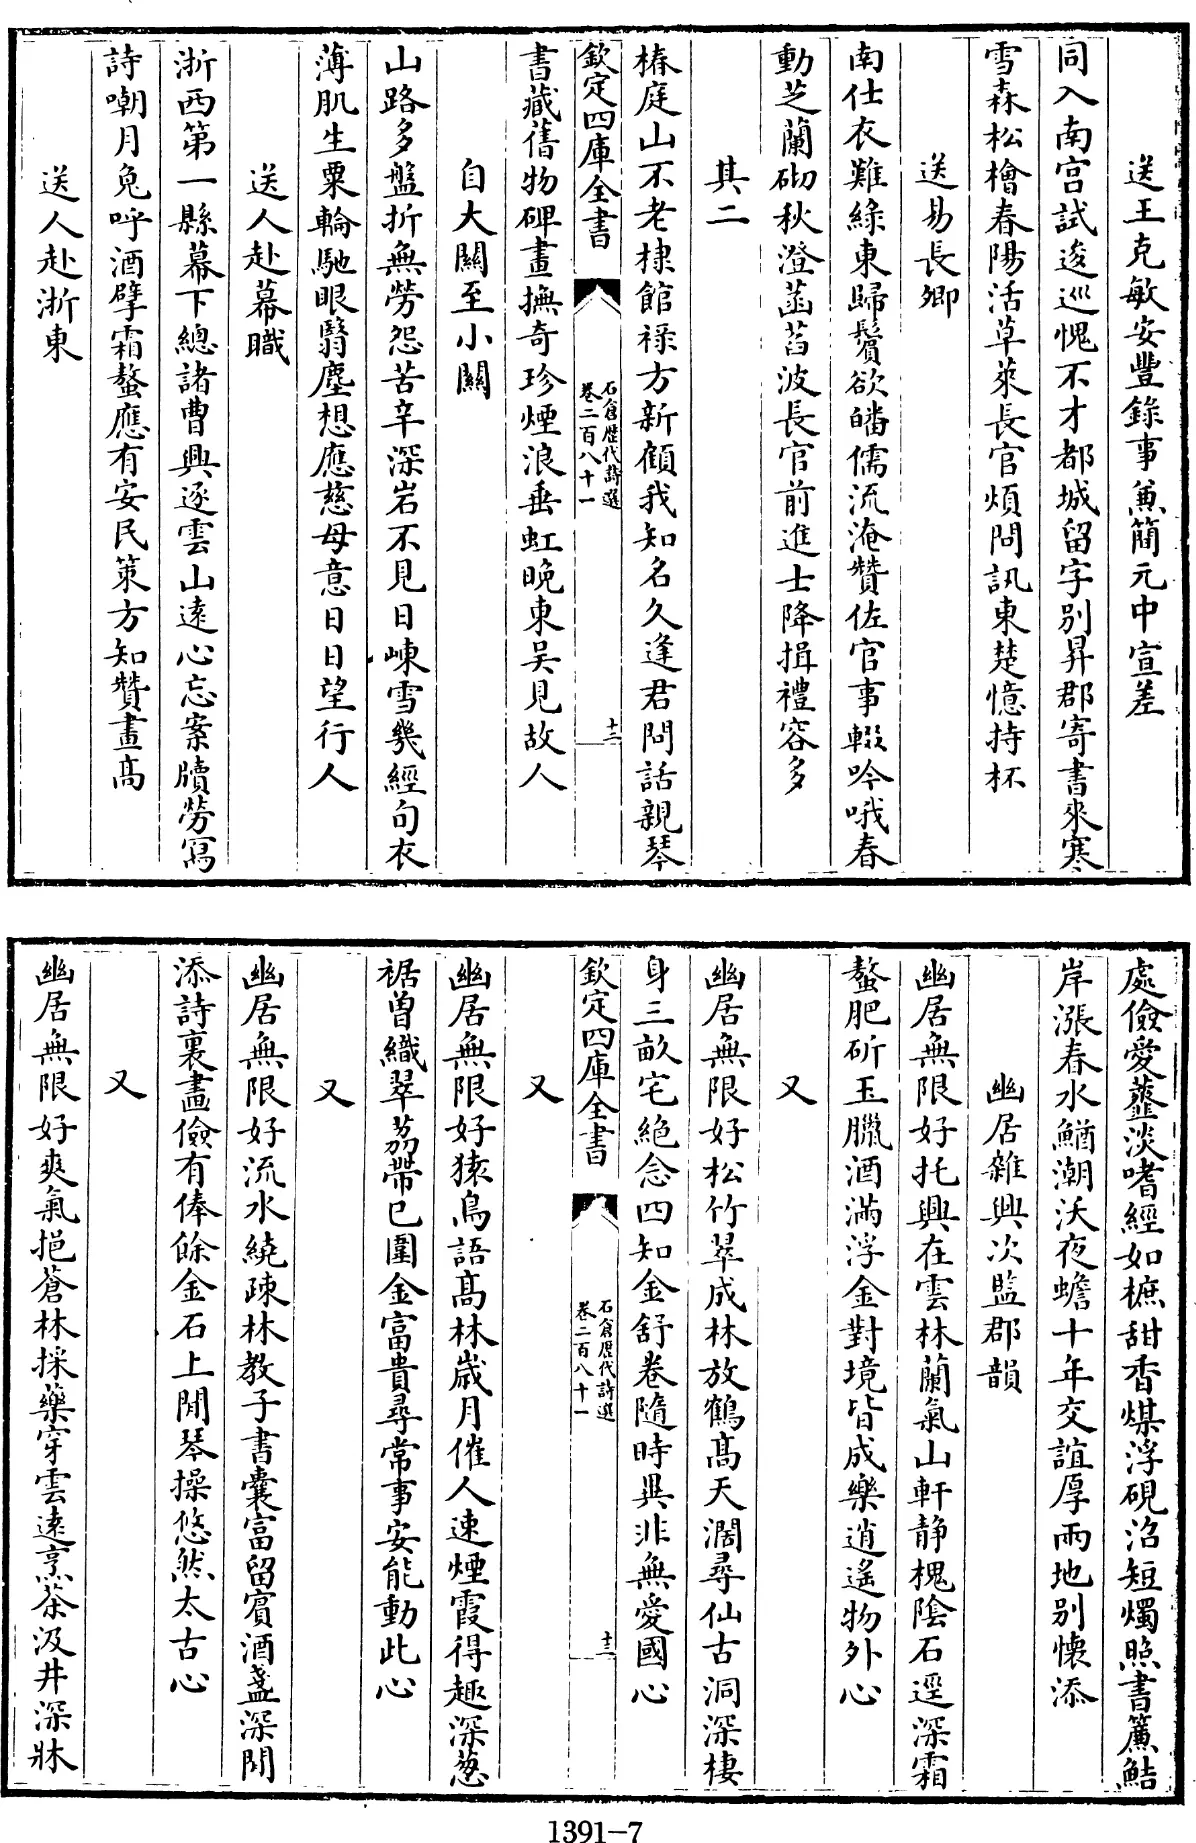 送王克敏安豐錄事兼簡元中宣差
同入南宫試逡巡愧不才都城留字别昇郡寄書來寒
雪森松檜春陽活草萊長官煩問訊東楚憶持杯
送易長卿
南仕衣難綠東歸鬢欲皤儒流淹贊佐官事輟吟哦春
動芝蘭砌秋澄菡萏波長官前進士降揖禮容多
其二
椿庭山不老棣館祿方新顧我知名久逢君問話親琴
欽定四庫全書
石倉歷代詩選
卷二百八十一
十二
書藏舊物碑畫撫奇珍煙浪垂虹晚東吴見故人
自大關至小關
山路多盤折無勞怨苦辛深岩不見日崠雪幾經旬衣
薄肌生粟輪馳眼翳塵想應慈母意日日望行人
送人赴幕職
浙西第一縣幕下總諸曹興逐雲山遠心忘案牘勞寫
詩嘲月兔呼酒擘霜螯應有安民策方知贊畫高
送人赴浙東
處儉愛虀淡嗜經如樜甜香煤浮硯沼短燭照書簾鮚
岸漲春水鰌潮沃夜蟾十年交誼厚兩地别懷添
幽居雜興次監郡韻
幽居無限好托興在雲林蘭氣山軒静槐陰石逕深霜
螯肥斫玉臘酒滿浮金對境皆成樂逍遥物外心
又
幽居無限好松竹翠成林放鶴髙天濶尋仙古洞深棲
身三畝宅絶念四知金舒卷隨時異非無愛國心
欽定四庫全書
石倉歷代詩選
卷二百八十一
十三
又
幽居無限好猿鳥語髙林歲月催人速煙霞得趣深葱
裾曽織翠荔帶已圍金富貴尋常事安能動此心
又
幽居無限好流水繞疎林教子書囊富留賓酒盞深閒
添詩裏畫儉有俸餘金石上閒琴操悠然太古心
又
幽居無限好爽氣挹蒼林採藥穿雲遠烹茶汲井深牀
1391-7